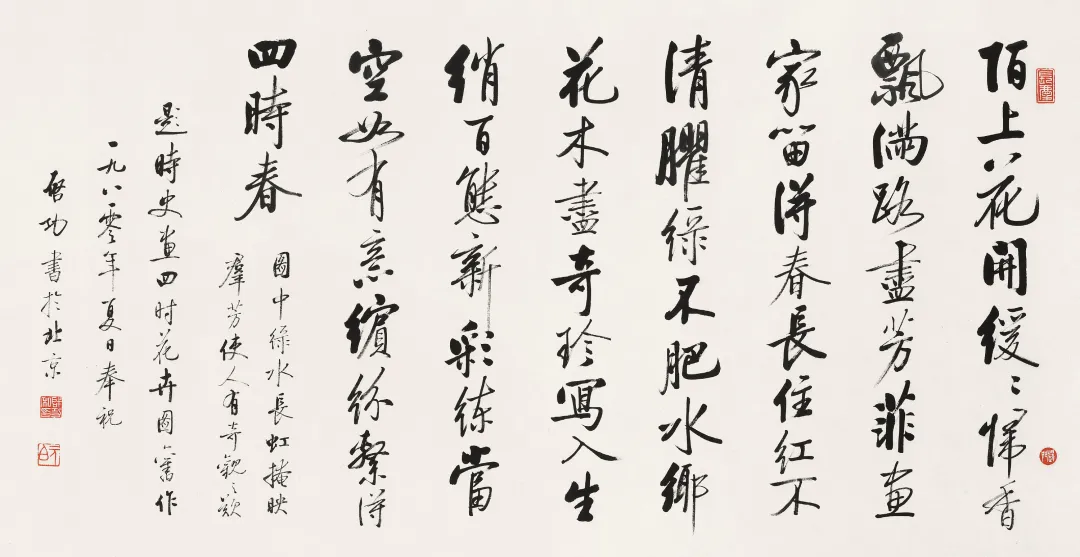 陌上花開緩〻歸香
飄滿路盡芳菲畫
家留得春長住紅不
清臞綠不肥水鄉
花木盡奇珍寫入生
綃百態新彩練當
空如有意繽紛繫得
四時春
圖中綠水長虹掩映
羣芳使人有奇觀之歎
題時史畫四时花卉圖舊作
一九八零年夏日奉祝
啓功書於北京